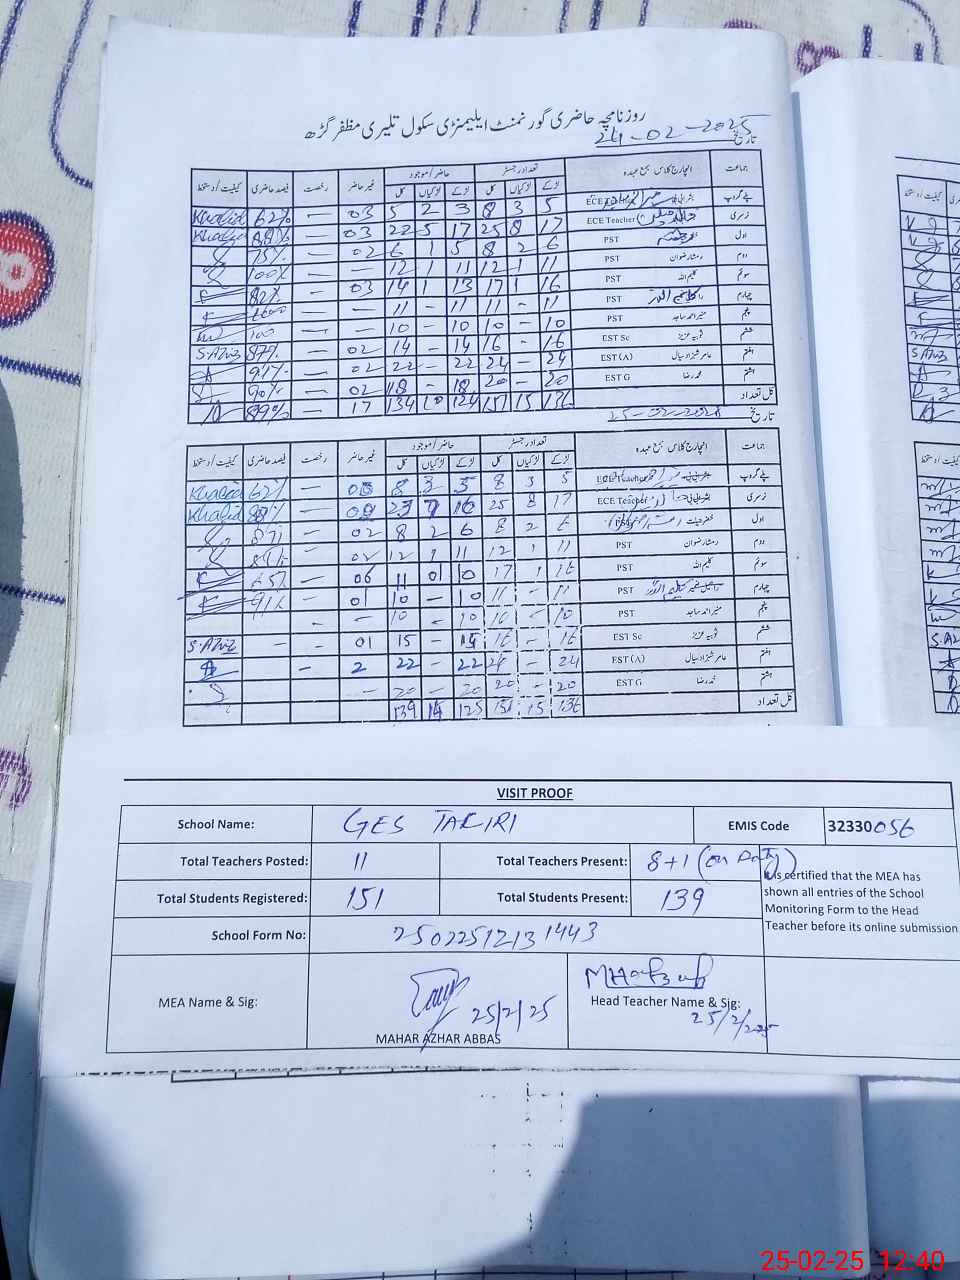 روزنامچہ حاضری گورنمنٹ ایلیمنٹری سکول تلیری مظفر گڑھ
تاریخ 24-02-2025
جماعت انچارج کلاس بمع عہدہ تعداد رجسٹر حاضر/موجود غیر حاضر رخصت فیصد حاضری کیفیت/دستخط
لڑکے لڑکیاں کل لڑکے لڑکیاں کل
پلے گروپ ECE 5 3 8 3 2 5 03 — 62% Khalid
نرسری ECE Teacher 17 8 25 17 5 22 03 — 88% Khalid
اول PST 6 2 8 5 1 6 02 — 75%
دوم رمشا رضوان PST 11 1 12 11 1 12 — — 100%
سوئم کلیم اللہ PST 16 1 17 13 1 14 03 — 82%
چہارم PST 11 — 11 11 — 11 — —
پنجم منیر احمد ساجد PST 10 — 10 10 — 10 — — 100
ششم ثوبیہ عزیز EST Sc 16 — 16 14 — 14 02 — 87% S.Aziz
ہفتم عامر شہزاد سیال EST (A) 24 — 24 22 — 22 02 — 91%
ہشتم محمد رضا EST G 20 — 20 18 — 18 02 — 90%
کل تعداد 136 15 151 124 10 134 17 — 89%
تاریخ 25-02-2025
جماعت انچارج کلاس بمع عہدہ تعداد رجسٹر حاضر/موجود غیر حاضر رخصت فیصد حاضری کیفیت/دستخط
لڑکے لڑکیاں کل لڑکے لڑکیاں کل
پلے گروپ ECE Teacher 5 3 8 5 3 8 — 62% Khalid
نرسری ECE Teacher 17 8 25 16 7 23 — 88% Khalid
اول خضر حیات PST 6 2 8 6 2 8 02 —
دوم رمشا رضوان PST 11 1 12 11 1 12 —
سوئم کلیم اللہ PST 16 1 17 10 01 11 06 — 65%
چہارم PST 11 — 11 10 — 10 01 — 91%
پنجم منیر احمد ساجد PST 10 — 10 10 — 10
ششم ثوبیہ عزیز EST Sc 16 — 16 15 — 15 01 — - S.Aziz
ہفتم عامر شہزاد سیال EST (A) 24 — 24 22 — 22 2 —
ہشتم محمد رضا EST G 20 — 20 20 — 20 —
کل تعداد 136 15 151 125 14 139
VISIT PROOF
School Name: GES TALIRI EMIS Code 32330056
Total Teachers Posted: 11 Total Teachers Present: 8+1 (on Duty)
Total Students Registered: 151 Total Students Present: 139
It is certified that the MEA has
shown all entries of the School
Monitoring Form to the Head
Teacher before its online submission
School Form No: 25022512131443
MEA Name & Sig: 25/2/25
MAHAR AZHAR ABBAS
Head Teacher Name & Sig:
25/2/2025
25-02-25 12:40